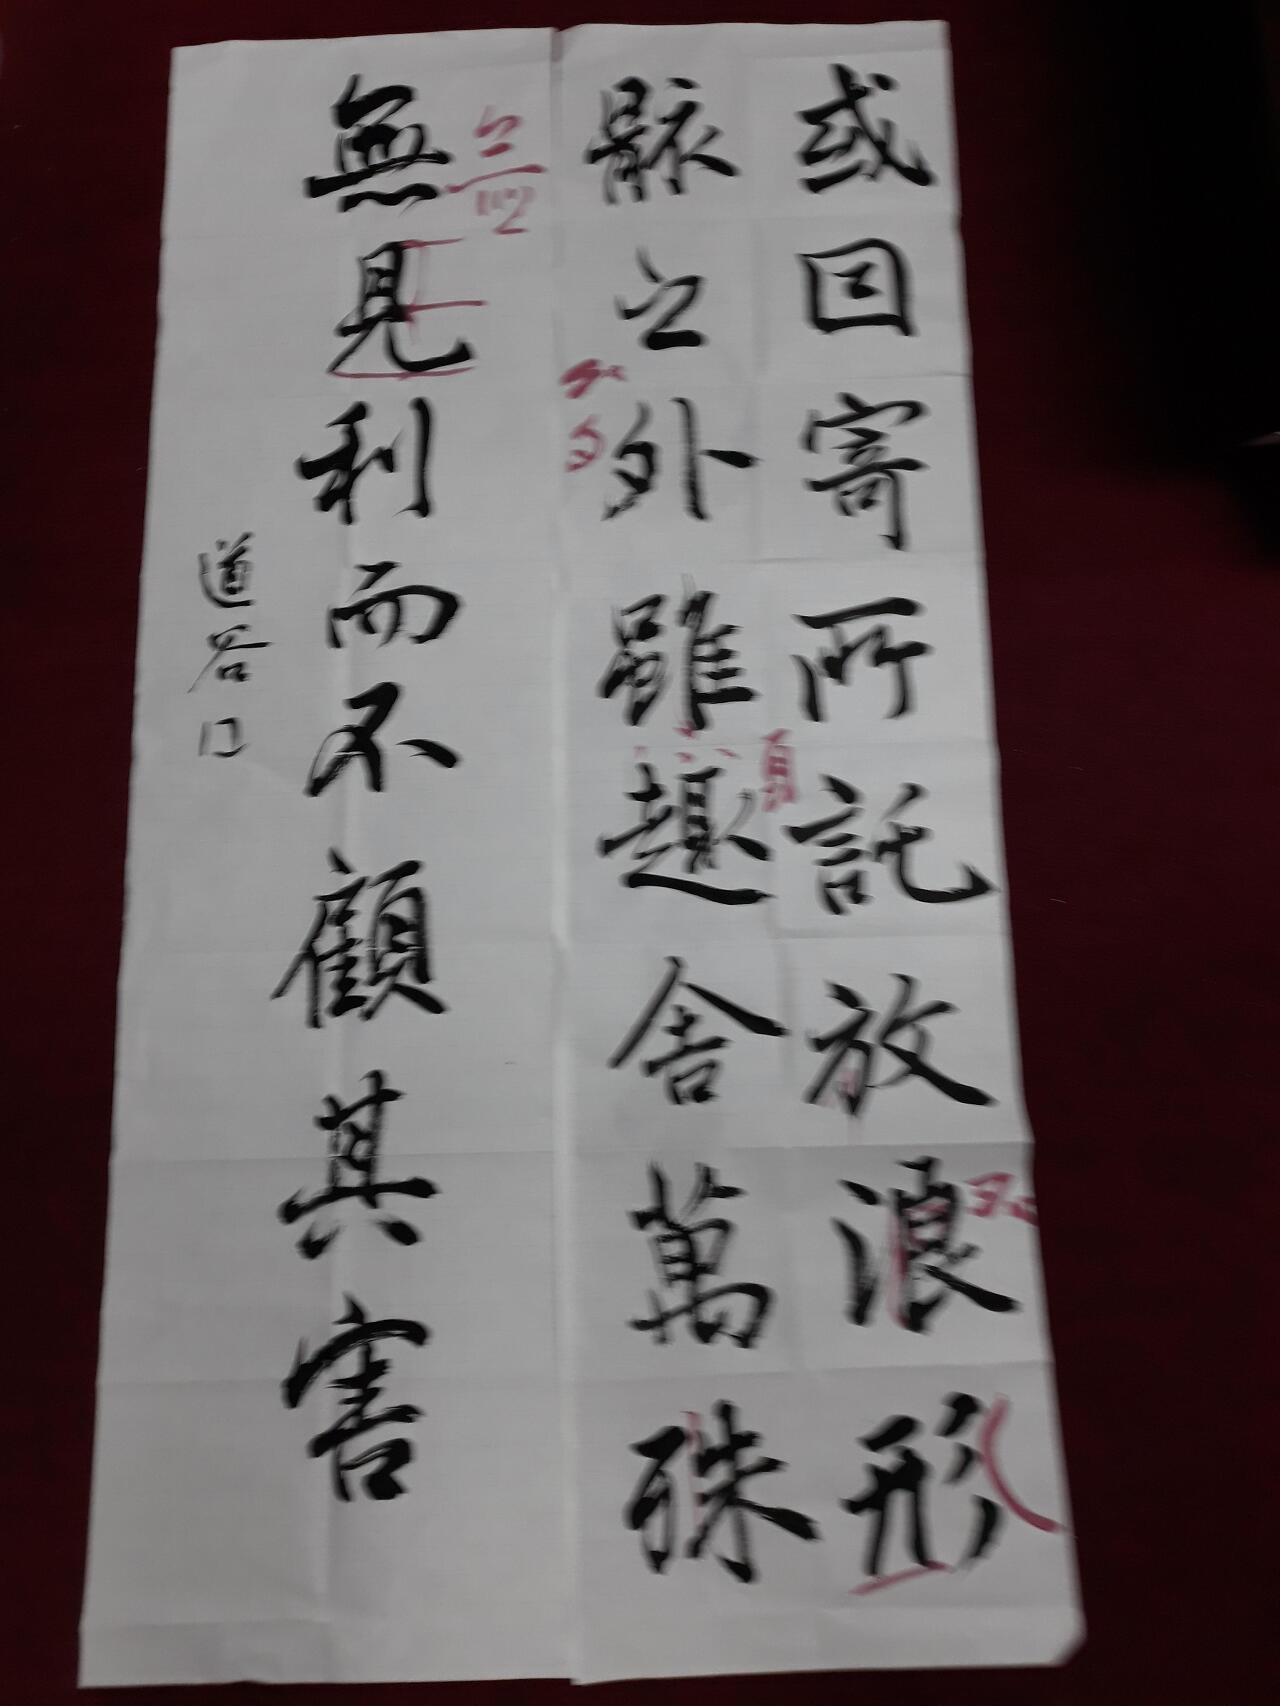 或因寄所託放浪形
骸之外雖趣舍萬殊
無見利而不顧其害
道谷口